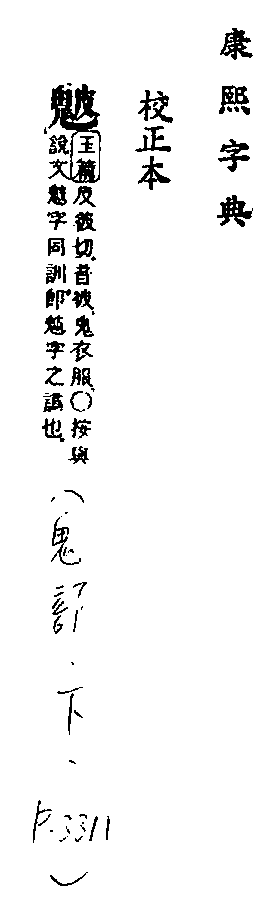 康熙字典
校正本
䰟玉篇皮彼切音被鬼衣服○按與
說文鬾字同訓即鬾字之譌也
(鬼部.下.
P.3311)